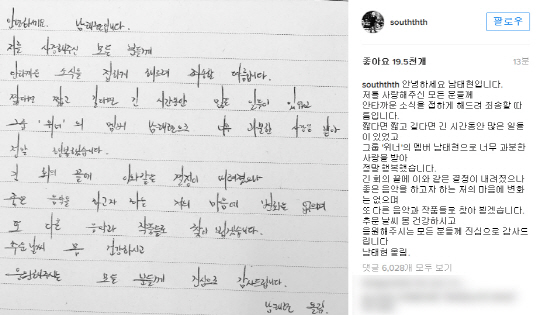 안녕하세요. 남태현입니다.
저를 사랑해주신 모든 분들께
안타까운 소식을 접하게 해드려 죄송할 따름입니다.
짧다면 짧고 길다면 긴 시간동안 많은 일들이 있었고
그룹 '위너'의 멤버 남태현으로 너무 과분한 사랑을 받아
정말 행복했습니다.
긴 회의 끝에 이와같은 결정이 내려졌으나
좋은 음악을 하고자 하는 저의 마음에 변화는 없으며
또 다른 음악과 작품들로 찾아 뵙겠습니다.
추운날씨 몸 건강하시고
응원해주시는 모든 분들께 진심으로 감사드립니다.
남태현 올림.
southhth
팔로우
좋아요 19.5천개
13분
southhth 안녕하세요 남태현입니다.
저를 사랑해주신 모든 분들께
안타까운 소식을 접하게 해드려 죄송할 따
름입니다.
짧다면 짧고 길다면 긴 시간동안 많은 일들
이 있었고
그룹 '위너'의 멤버 남태현으로 너무 과분한
사랑을 받아
정말 행복했습니다.
긴 회의 끝에 이와 같은 결정이 내려졌으나
좋은 음악을 하고자 하는 저의 마음에 변화
는 없으며
또 다른 음악과 작품들로 찾아 뵙겠습니다.
추운 날씨 몸 건강하시고
응원해주시는 모든 분들께 진심으로 감사드
립니다
남태현 올림.
댓글 6,028개 모두 보기